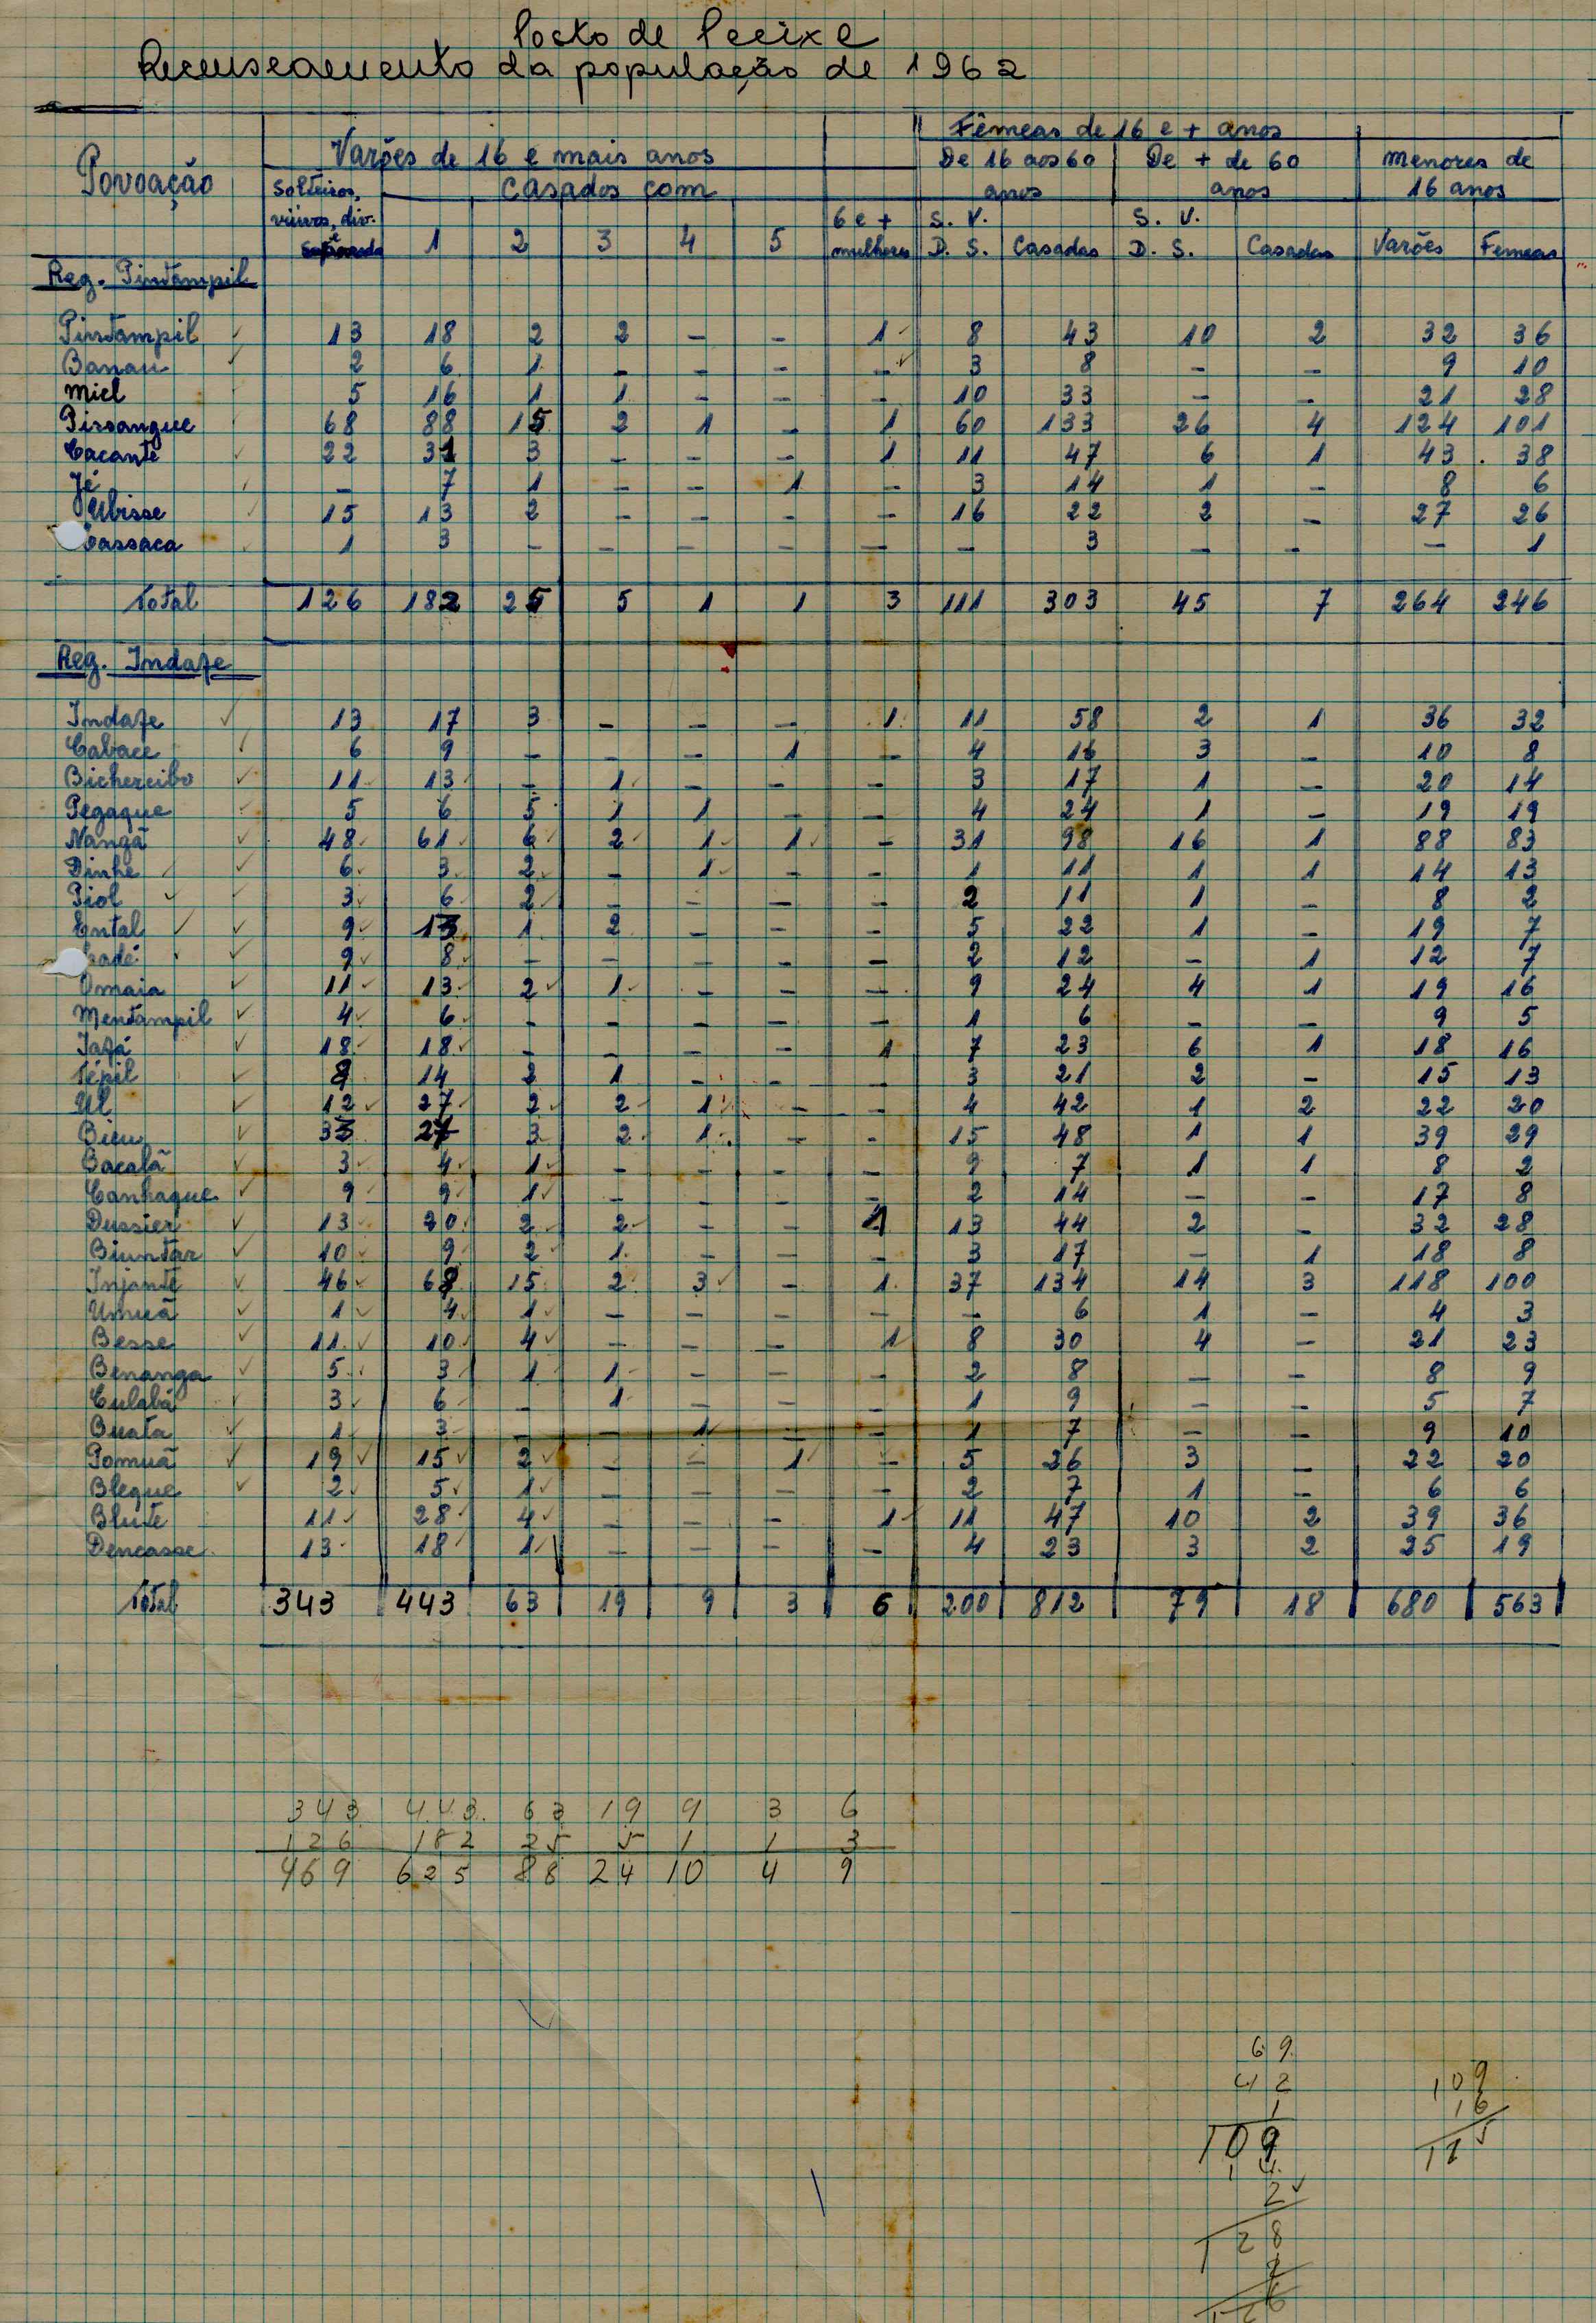 Posto de Pecixe
Recenseamento da população de 1962
Povoação
Varões de 16 e mais anos
Fêmeas de 16 e + anos
Solteiros, viúvos, div. e
Casados com
De 16 aos 60 anos
De + de 60 anos
Menores de 16 anos
1 2 3 4 5 6 e + mulheres S. V. D. S. Casadas S. V. D. S. Casadas Varões Femeas
Reg. Pintampil
Pintampil 13 18 2 2 – – 1 8 43 10 2 32 36
Banau 2 6 1 – – – – 3 8 – – 9 10
Miel 5 16 1 1 – – – 10 33 – – 21 28
Pissangue 68 88 15 2 1 – 1 60 133 26 4 124 101
Cacante 22 31 3 – – – 1 11 47 6 1 43 38
Jé – 7 1 – – 1 – 3 14 1 – 8 6
Ubisse 15 13 2 – – – – 16 22 2 – 27 26
Cassaca 1 3 – – – – – – 3 – – – 1
Total 126 182 25 5 1 1 3 111 303 45 7 264 246
Reg. Indafe
Indafe 13 17 3 – – – 1 11 58 2 1 36 32
Cabace 6 9 – – – 1 – 4 16 3 – 10 8
Bichercibo 11 13 – 1 – – – 3 17 1 – 20 14
Pegaque 5 6 5 1 1 – – 4 24 1 – 19 19
Nangã 48 61 6 2 1 1 – 31 98 16 1 88 83
Dinhe 6 3 2 – 1 – – 1 11 1 1 14 13
Piol 3 6 2 – – – – 2 11 1 – 8 2
Ental 9 13 1 2 – – – 5 22 1 – 19 7
9 8 – – – – – 2 12 – 1 12 7
Omaia 11 13 2 1 – – – 9 24 4 1 19 16
Mentampil 4 6 – – – – – 1 6 – – 9 5
18 18 – – – – 1 7 23 6 1 18 16
Tépil 14 2 1 – – – 3 21 2 – 15 13
Ul 12 27 2 2 1 – – 4 42 1 2 22 20
Bieu 3 2 1 – – 15 48 1 1 39 29
Bacalã 3 4 1 – – – – 9 7 1 1 8 2
Canhaque 9 9 1 – – – – 2 14 – – 17 8
Dussier 13 20 2 2 – – 1 13 44 2 – 32 28
Biuntar 10 9 2 1 – – – 3 17 – 1 18 8
Injante 46 68 15 2 3 – 1 37 134 14 3 118 100
Umuã 1 4 1 – – – – – 6 1 – 4 3
Besse 11 10 4 – – – 1 8 30 4 – 21 23
Benanga 5 3 1 1 – – – 2 8 – – 8 9
Culabã 3 6 – 1 – – – 1 9 – – 5 7
Buata 1 3 – – 1 – – 1 7 – – 9 10
Pomuã 19 15 2 – – 1 – 5 26 3 – 22 20
Bleque 2 5 1 – – – – 2 7 1 – 6 6
Blute 11 28 4 – – – 1 11 47 10 2 39 36
Dencasse 13 18 1 – – – – 4 23 3 2 25 19
Total 343 443 63 19 9 3 6 200 812 79 18 680 563
343 443 63 19 9 3 6
126 182 25 5 1 1 3
469 625 88 24 10 4 9
69
42
1
109
14
2
128
109
16